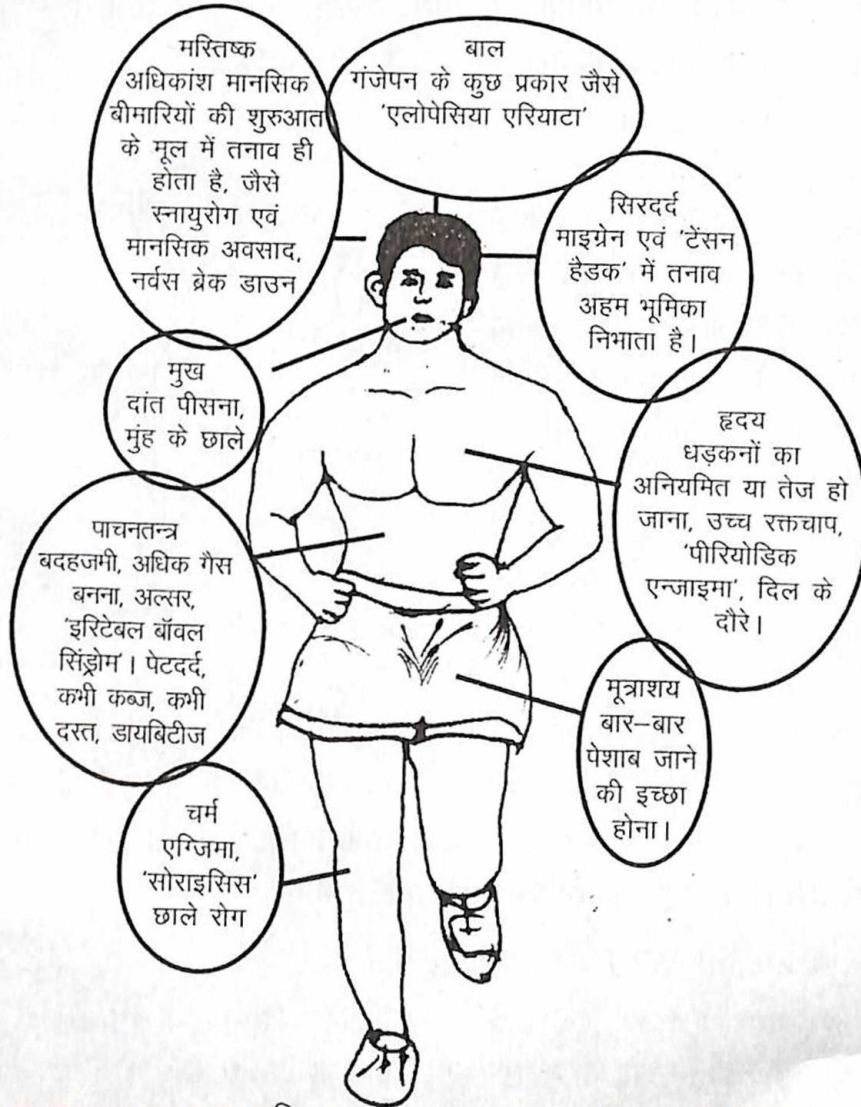 मस्तिष्क
अधिकांश मानसिक
बीमारियों की शुरुआत
के मूल में तनाव ही
होता है, जैसे
स्नायुरोग एवं
मानसिक अवसाद,
नर्वस ब्रेक डाउन
बाल
गंजेपन के कुछ प्रकार जैसे
'एलोपेसिया एरियाटा'
सिरदर्द
माइग्रेन एवं 'टेंसन
हैडक' में तनाव
अहम भूमिका
निभाता है।
मुख
दांत पीसना,
मुंह के छाले
हृदय
धड़कनों का
अनियमित या तेज हो
जाना, उच्च रक्तचाप,
'पीरियोडिक
एन्जाइमा', दिल के
दौरे।
पाचनतन्त्र
बदहजमी, अधिक गैस
बनना, अल्सर,
'इरिटेबल बॉवल
सिंड्रोम'। पेटदर्द,
कभी कब्ज, कभी
दस्त, डायबिटीज
मूत्राशय
बार–बार
पेशाब जाने
की इच्छा
होना।
चर्म
एग्जिमा,
'सोराइसिस'
छाले रोग